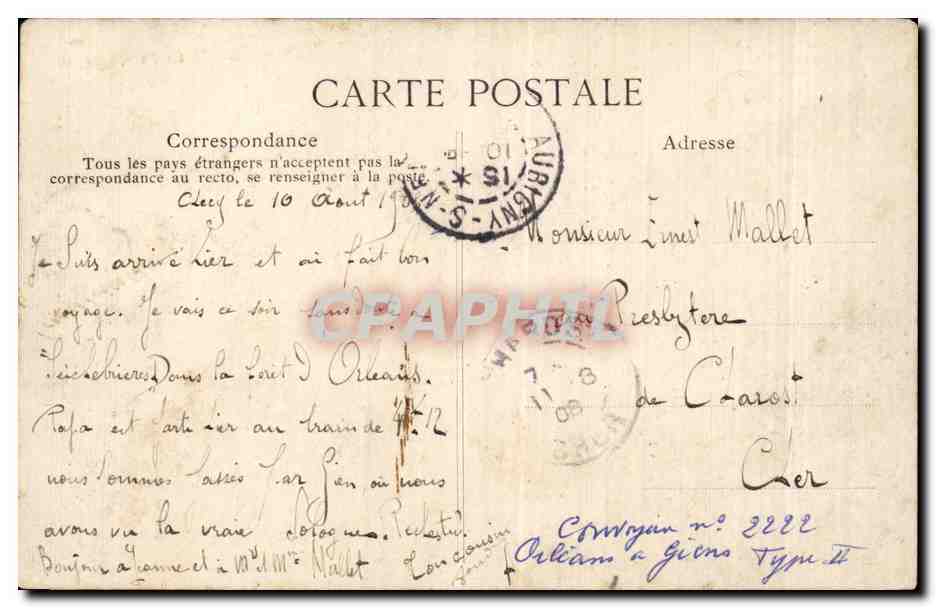 CARTE POSTALE
Correspondance
Tous les pays étrangers n'acceptent pas la
correspondance au recto, se renseigner à la poste.
Adresse
le 10 Aout
Je suis arrivé hier et ai fait bon
voyage. Je vais ce soir sans doute a
Seichebrieres Dans la forêt D Orleans.
Papa est Parti hier au train de 4h 12
nous sommes passés Par Gien où nous
avons vu la vraie Sologne.
Bonjour a Jeanne et à Mr et Mme Mallet
Ton cousin
Monsieur Ernest Mallet
Presbytere
de Charost
Cher
AUBIGNY-S-NÈRE
15 *
10
7
11 8
08
CHER
CPAPHIL
Convoyeur n° 2222
Orléans a Giens Type II